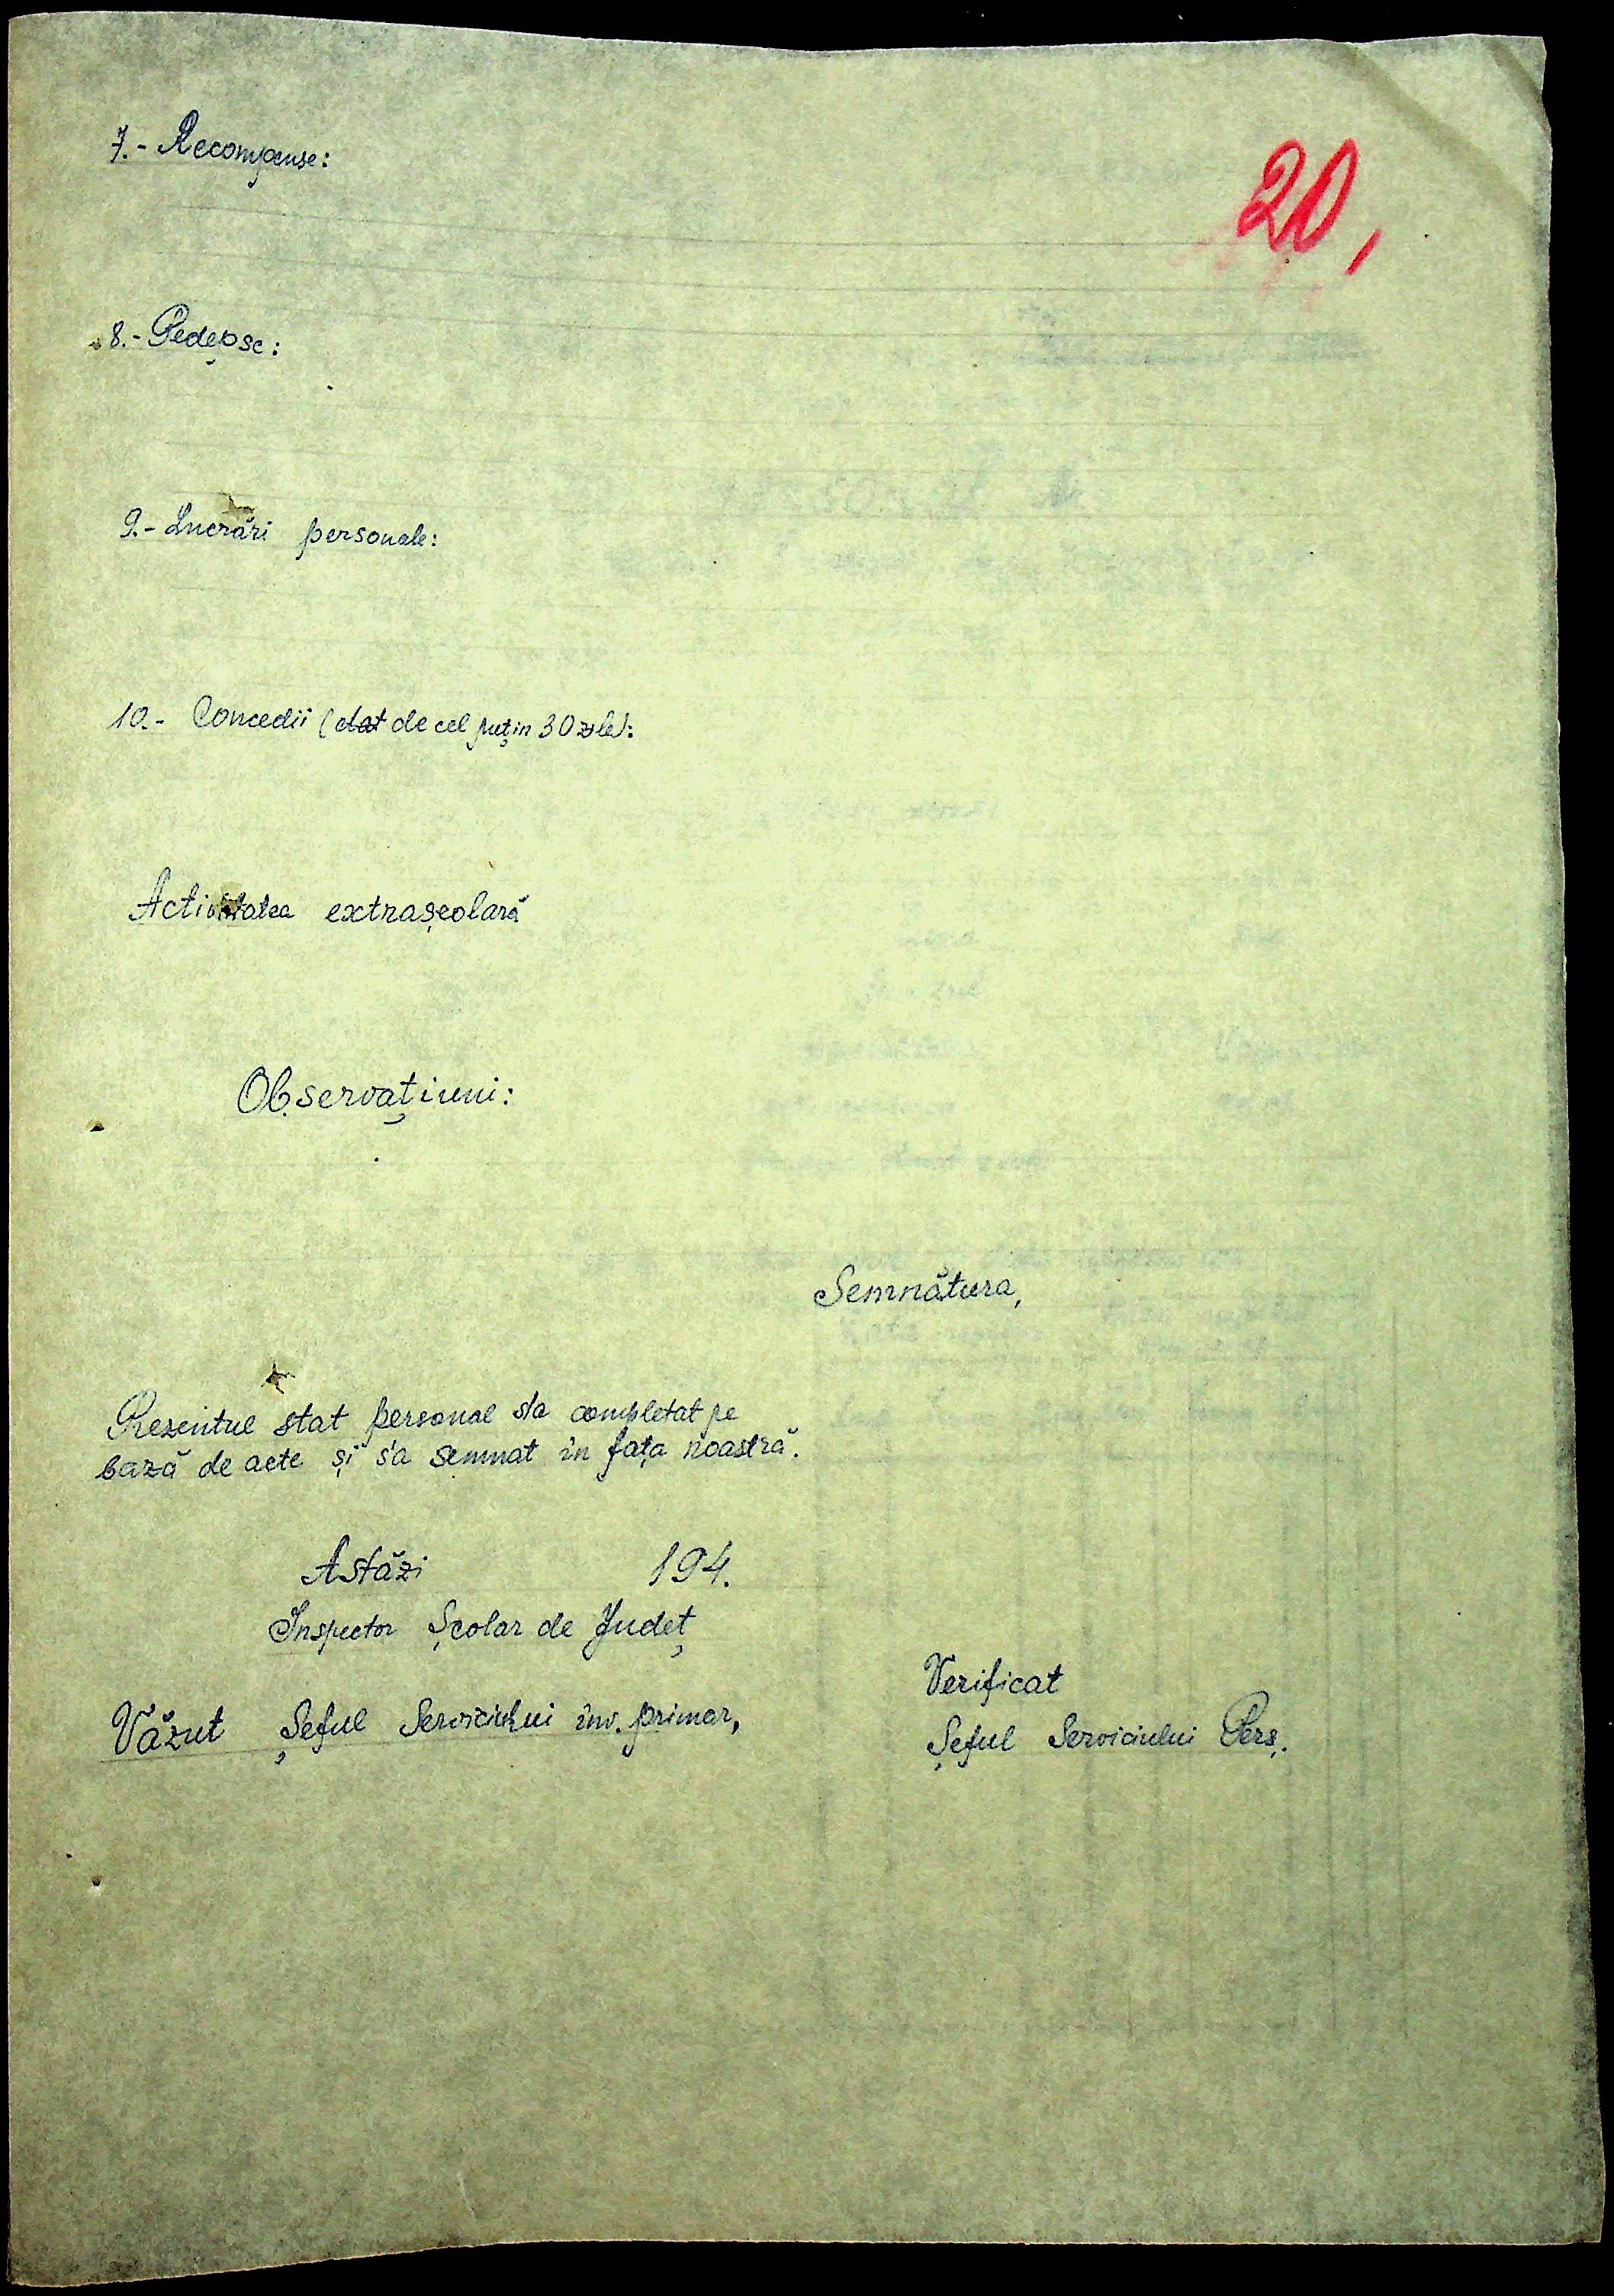 20,
7.- Recompense:
8.- Pedepse:
9.- Lucrări personale:
10.- Concedii (dat de cel puțin 30 zile):
Activitatea extrașcolară
Observațiuni:
Semnătura,
Prezentul stat personal s'a completat pe
bază de acte și s'a semnat în fața noastră.
Astăzi 194.
Inspector Școlar de Județ
Verificat
Văzut Șeful Serviciului înv. primar,
Șeful Serviciului Pers.